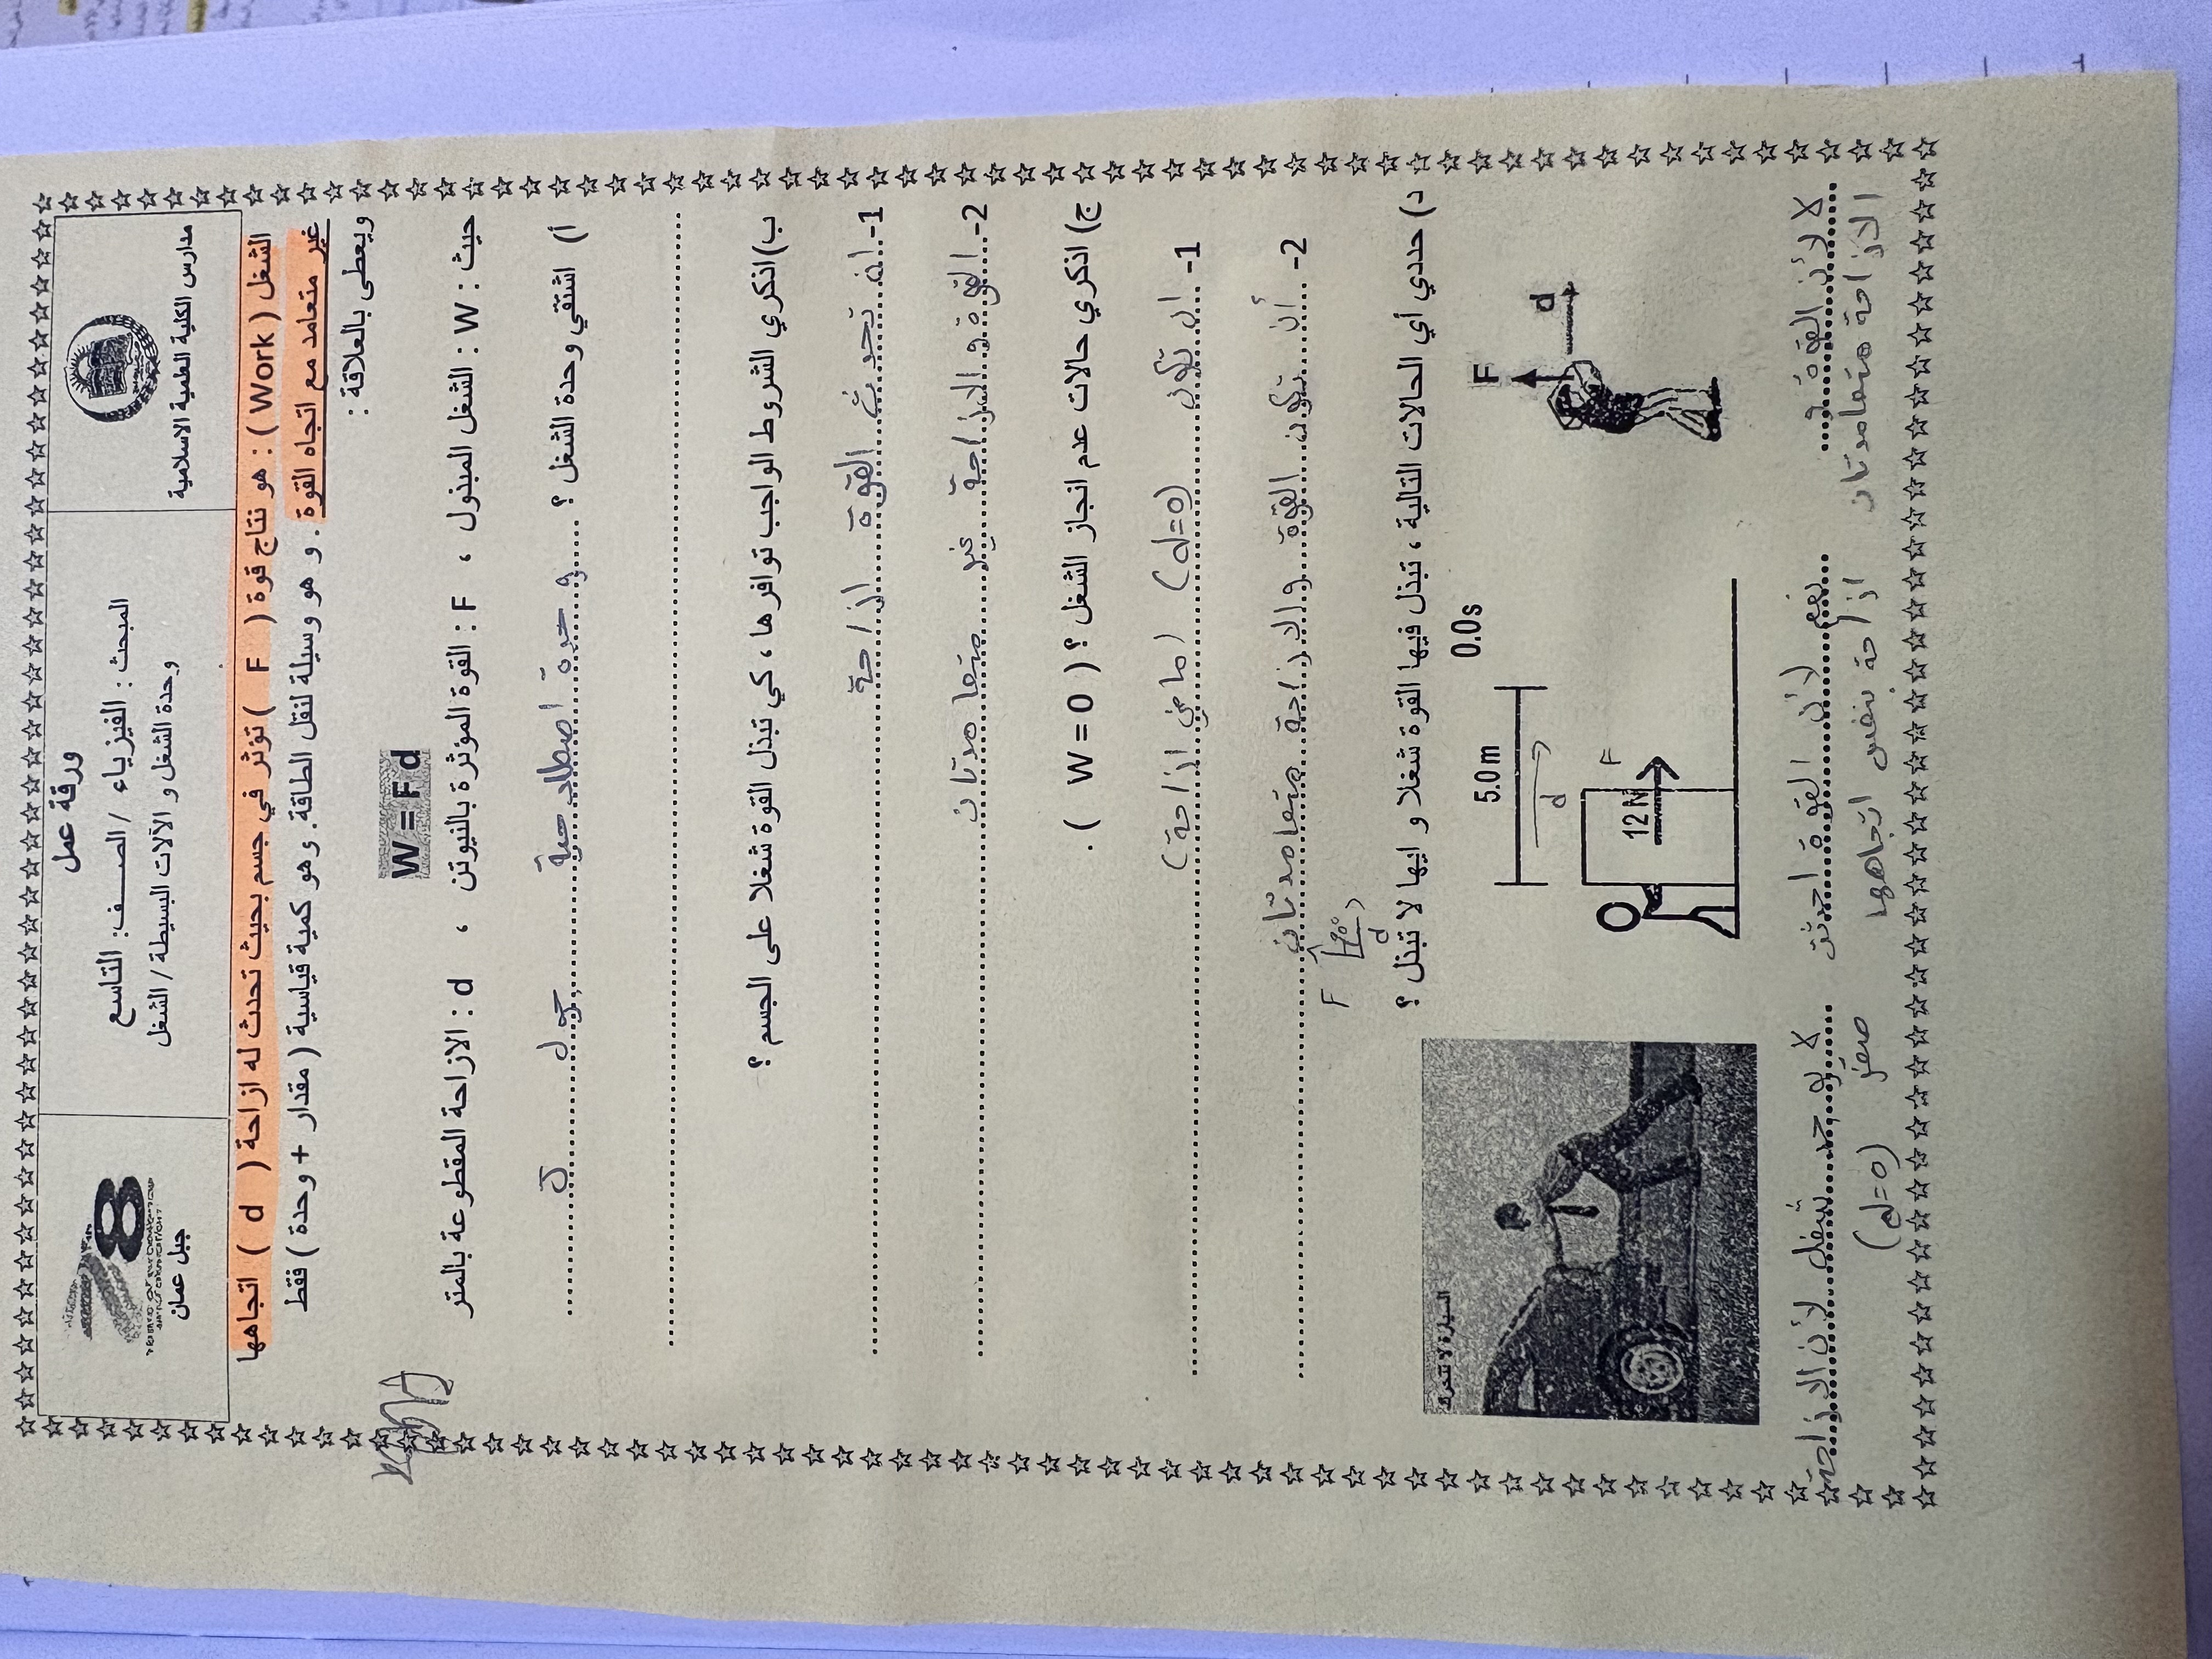 مدارس الكلية العلمية الاسلامية
ورقة عمل
المبحث : الفيزياء / الصف: التاسع
وحدة الشغل و الآلات البسيطة / الشغل
جبل عمان
الشغل ( Work ) : هو نتاج قوة ( F ) تؤثر في جسم بحيث تحدث له ازاحة ( d ) اتجاهها
غير متعامد مع اتجاه القوة . و هو وسيلة لنقل الطاقة. وهو كمية قياسية ( مقدار + وحدة ) فقط
ويعطى بالعلاقة :
W = F d
حيث : W : الشغل المبذول ، F : القوة المؤثرة بالنيوتن ، d : الازاحة المقطوعة بالمتر
أ) اشتقي وحدة الشغل ؟ وحدة اصطلاحية جول
ب) اذكري الشروط الواجب توافرها ، كي تبذل القوة شغلا على الجسم ؟
1- ان تحدث القوة ازاحة
2- القوة والازاحة غير متعامدتان
ج) اذكري حالات عدم انجاز الشغل ؟ ( W = 0 ) .
1- ان تكون (d=0) (مافي ازاحة)
2- أن تكون القوة والازاحة متعامدتان
F 90° d
د) حددي أي الحالات التالية ، تبذل فيها القوة شغلا و ايها لا تبذل ؟
F d
0.0s
5.0 m
d
12 N F
السيارة لا تتحرك
لا لأن القوة و
الازاحة متعامدتان
نعم لأن القوة احدثت
ازاحة بنفس اتجاهها
لا يوجد شغل لأن الازاحة
صفر (d=0)